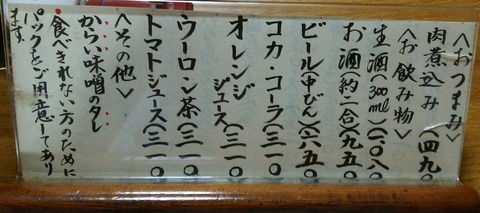 〈おつまみ〉
肉煮込み(四九〇
〈お飲み物〉
生酒(300ml)(一、〇八〇
お酒(約二合)(九五〇
ビール(中びん)(六五〇
コカ・コーラ(三一〇
オレンジ
ジュース(三一〇
ウーロン茶(三一〇
トマトジュース(三一〇
〈その他〉
からい味噌のタレ
・食べきれない方のために
パックをご用意してあり
ます。